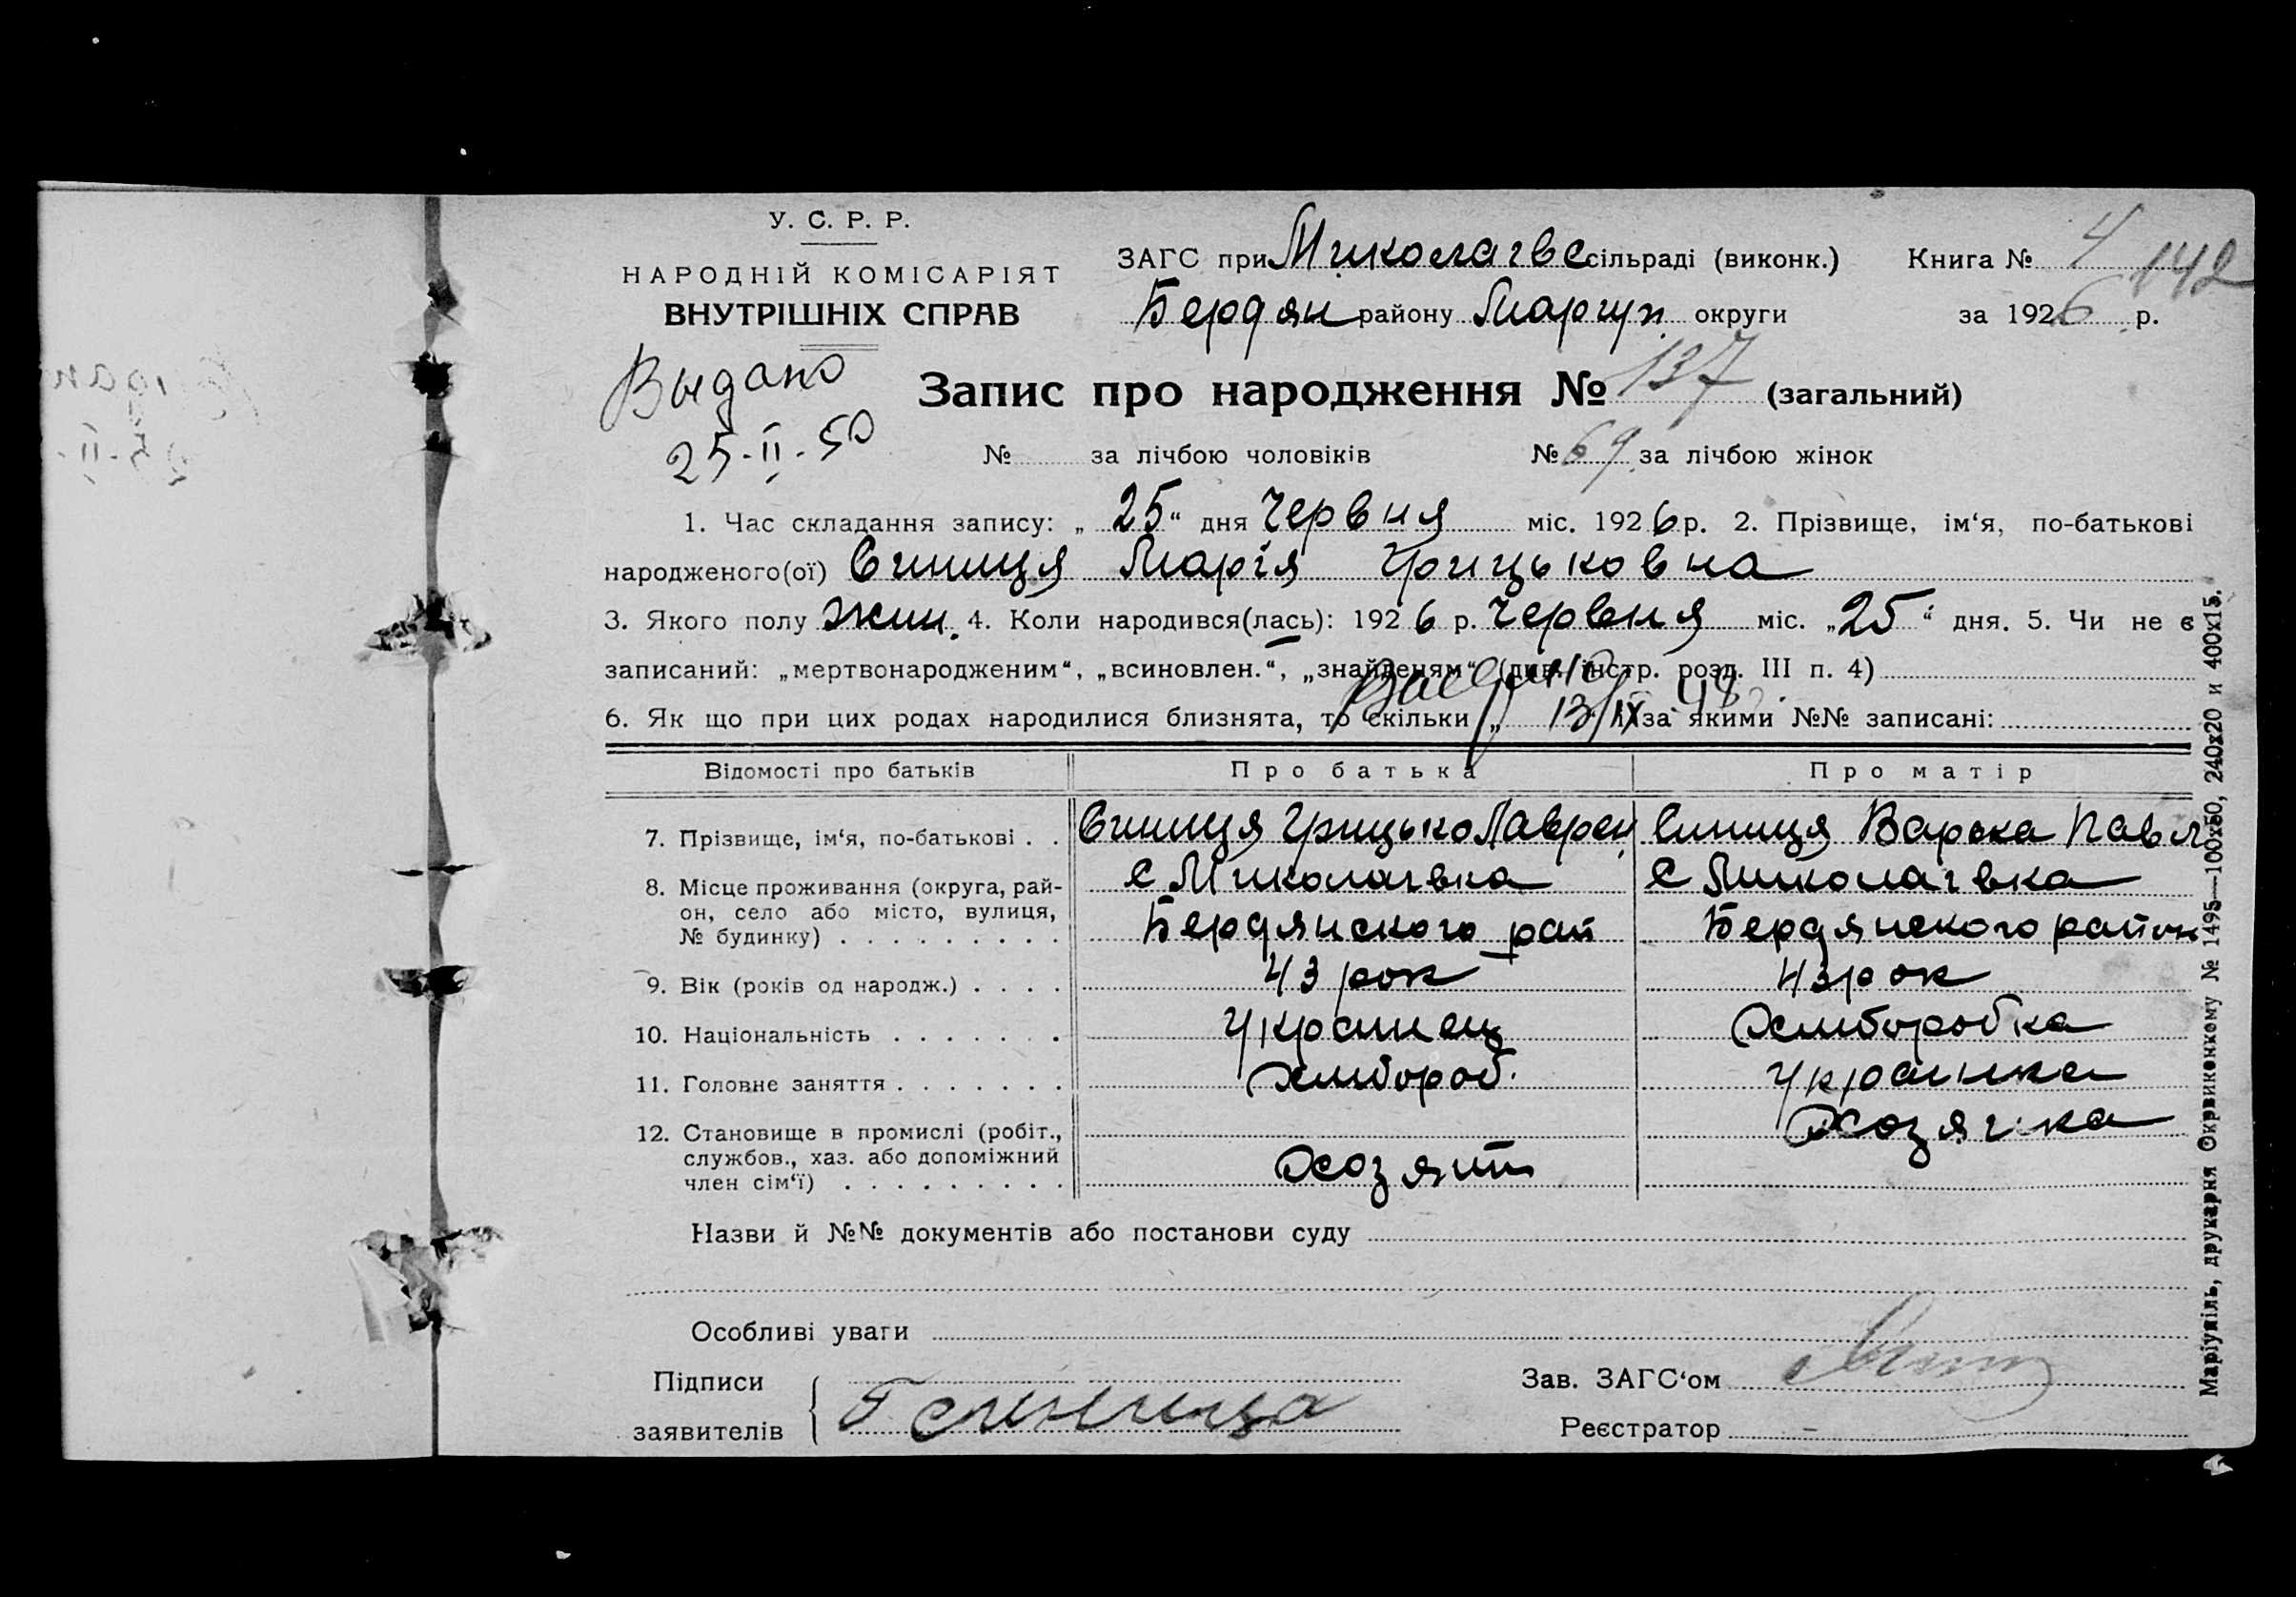 У. С. Р. Р.
НАРОДНІЙ КОМІСАРІЯТ
ВНУТРІШНІХ СПРАВ
ЗАГС при Миколаївс сільраді (виконк.) Книга № 4 142
Бердян району Маріуп. округи за 1926 р.
Выдано
25-II-50
Запис про народження № 137 (загальний)
№ за лічбою чоловіків № 69 за лічбою жінок
1. Час складання запису: „25“ дня Червня міс. 1926 р. 2. Прізвище, ім‘я, по-батькові
народженого(ої) Синиця Марія Грицьковна
3. Якого полу жин. 4. Коли народився(лась): 1926 р. Червня міс. „25“ дня. 5. Чи не є
записаний: „мертвонародженим“, „всиновлен.“, „знайденям“ (див. інстр. розд. III п. 4)
6. Як що при цих родах народилися близнята, то скільки „ 13/IX 48 за якими №№ записані:
Відомості про батьків Про батька Про матір
7. Прізвище, ім‘я, по-батькові . . Синиця Грицько Лаврен Синиця Варька Павл
8. Місце проживання (округа, рай- с Миколаівка с Миколаівка
он, село або місто, вулиця,
№ будинку) . . . . . . . . . Бердянского рай Бердянского район
9. Вік (років од народж.) . . . . 43 рок 43 рок
10. Національність . . . . . . . Украинец Хлиборобка
11. Головне заняття . . . . . . . Хлибороб. Украинка
12. Становище в промислі (робіт., Хозяйка
службов., хаз. або допоміжний Хозяин
член сім‘ї) . . . . . . . . .
Назви й №№ документів або постанови суду
Особливі уваги
Підписи
заявителів Г Синица
Зав. ЗАГС‘ом
Реєстратор
Маріупіль, друкарня Окрвиконкому № 1495—100х50, 240х20 и 400х15.